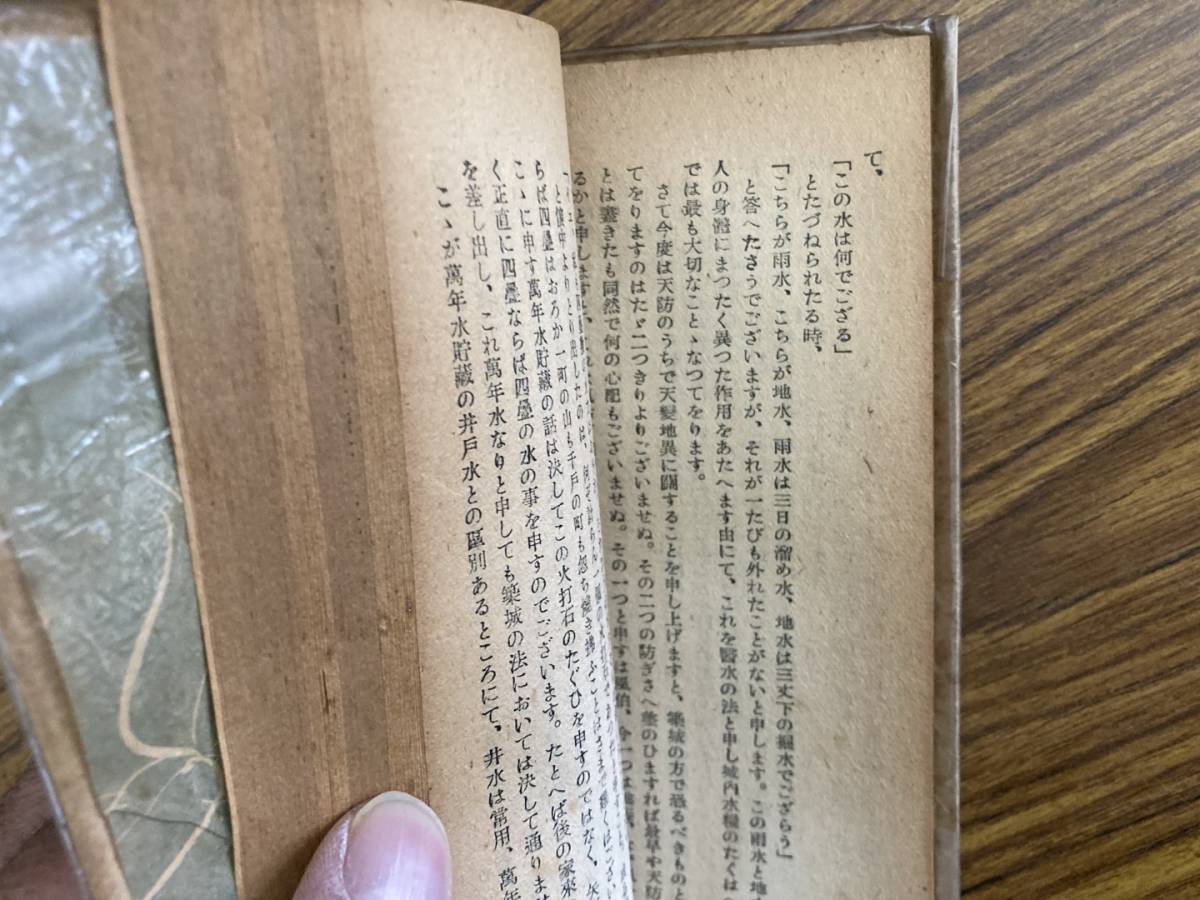 て、
「この水は何でござる」
とたづねられたる時、
「こちらが雨水、こちらが地水、雨水は三日の溜め水、地水は三丈下の掘水でござらう」
と答へたさうでございますが、それが一たびも外れたことがないと申します。この雨水と地
人の身體にまつたく異つた作用をあたへます由にて、これを醫水の法と申し城内水
では最も大切なことゝなつてをります。
さて今度は天防のうちで天變地異に關することを申し上げますと、築城の方で恐るべきものと
てをりますのはたゞ二つきりよりございませぬ。その二つの防ぎさへ
ひますれば最早や天防
とは書きたも同然で何の心配もございませぬ。その一つと申すは風伯、今一つは
るかと申しますと、
と懷中よりとり出したのは、
らば四疊はおろか一町の山も千戸の町も忽ち
こゝに申す萬年水貯藏の話は決してこの火打石のたぐひを申すのではなく、矢
く正直に四疊ならば四疊の水の事を申すのでございます。たとへば後の家來
を差し出し、これ萬年水なりと申しても築城の法においては決して通りませ
こゝが萬年水貯藏の井戸水との區別あるところにて、井水は常用、萬年